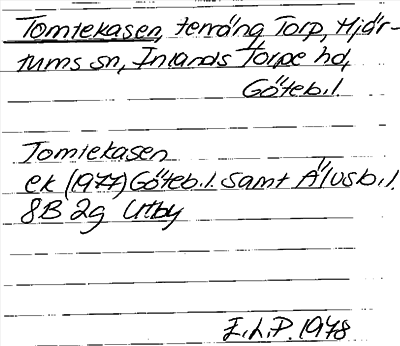 Tomtekasen, terräng Torp, Hjär-
tums sn, Inlands Torpe hd,
Göteb.l.
Tomtekasen
ek (1977) Göteb.l. samt Älvsb.l.
8B 2g Utby
E.L.P. 1978